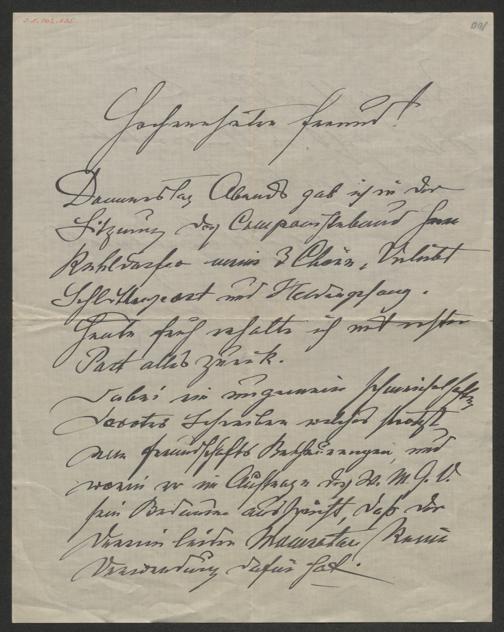 Hochverehrter Freund!
Donnerstag Abends gab ich in der
Sitzung des Componistenbund Herrn
meine 3 Chöre,
und Heldengesang.
Heute früh erhalte ich mit erster
Post alles zurück.
Dabei ein ungemein schmeichelhaftes
Schreiben welches strotzt
von Freundschafts Betheuerungen, und
worin er im Auftrage des W. M. G. V.
sein Bedauern ausspricht daß der
Verein leider momentan keine
Verwendung dafür hat.